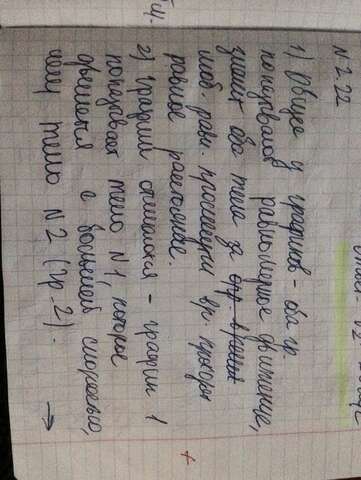 N 2.22
1) Общее у графиков - оба гр.
показывают равномерное движение,
значит оба тела за опр времени
люб. равн. промежути вр. проходят
равное расстояние.
2) Графики отличаются - график 1
показывает тело N1, которое
движется с большей скоростью,
чему тело N2 (гр. 2).